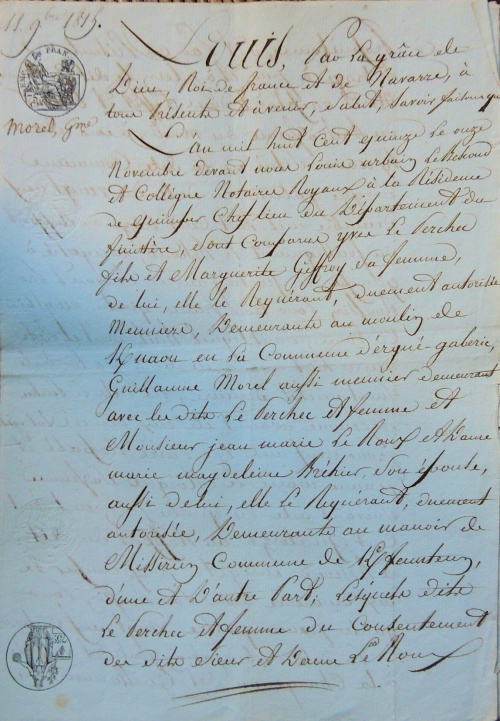 11. 9bre 1815.
Louis, Par la grâce de
Dieu, Roi de france et de Navarre, à
tous présents et à venir, Salut, Savoir faisons que
Morel, Gme
L'an mil huit cent quinze le onze
Novembre devant nous Louis urbain
et Collègue Notaires Royaux à la Résidence
de quimper Chef lieu du Département du
finistère, Sont Comparus yves Le Perchec
fils et Marguerite Geffroy Sa femme,
de lui, elle le Requérant, duement autorisée
Meuniers, Demeurants au moulin de
en la Commune d'ergué-gaberic,
Guillaume Morel aussi meunier demeurant
avec les dits Le Perchec et femme et
Monsieur jean marie Le Roux et Dame
marie magdeleine Bréhier, Son épouse,
aussi de lui, elle le Requérant, duement
autorisée, Demeurants au manoir de
Missirien Commune de Kfeunteun,
d'une et D'autre Part; Lesquels dits
Le Perchec et femme du Consentement
des dits Sieur et Dame Le Roux